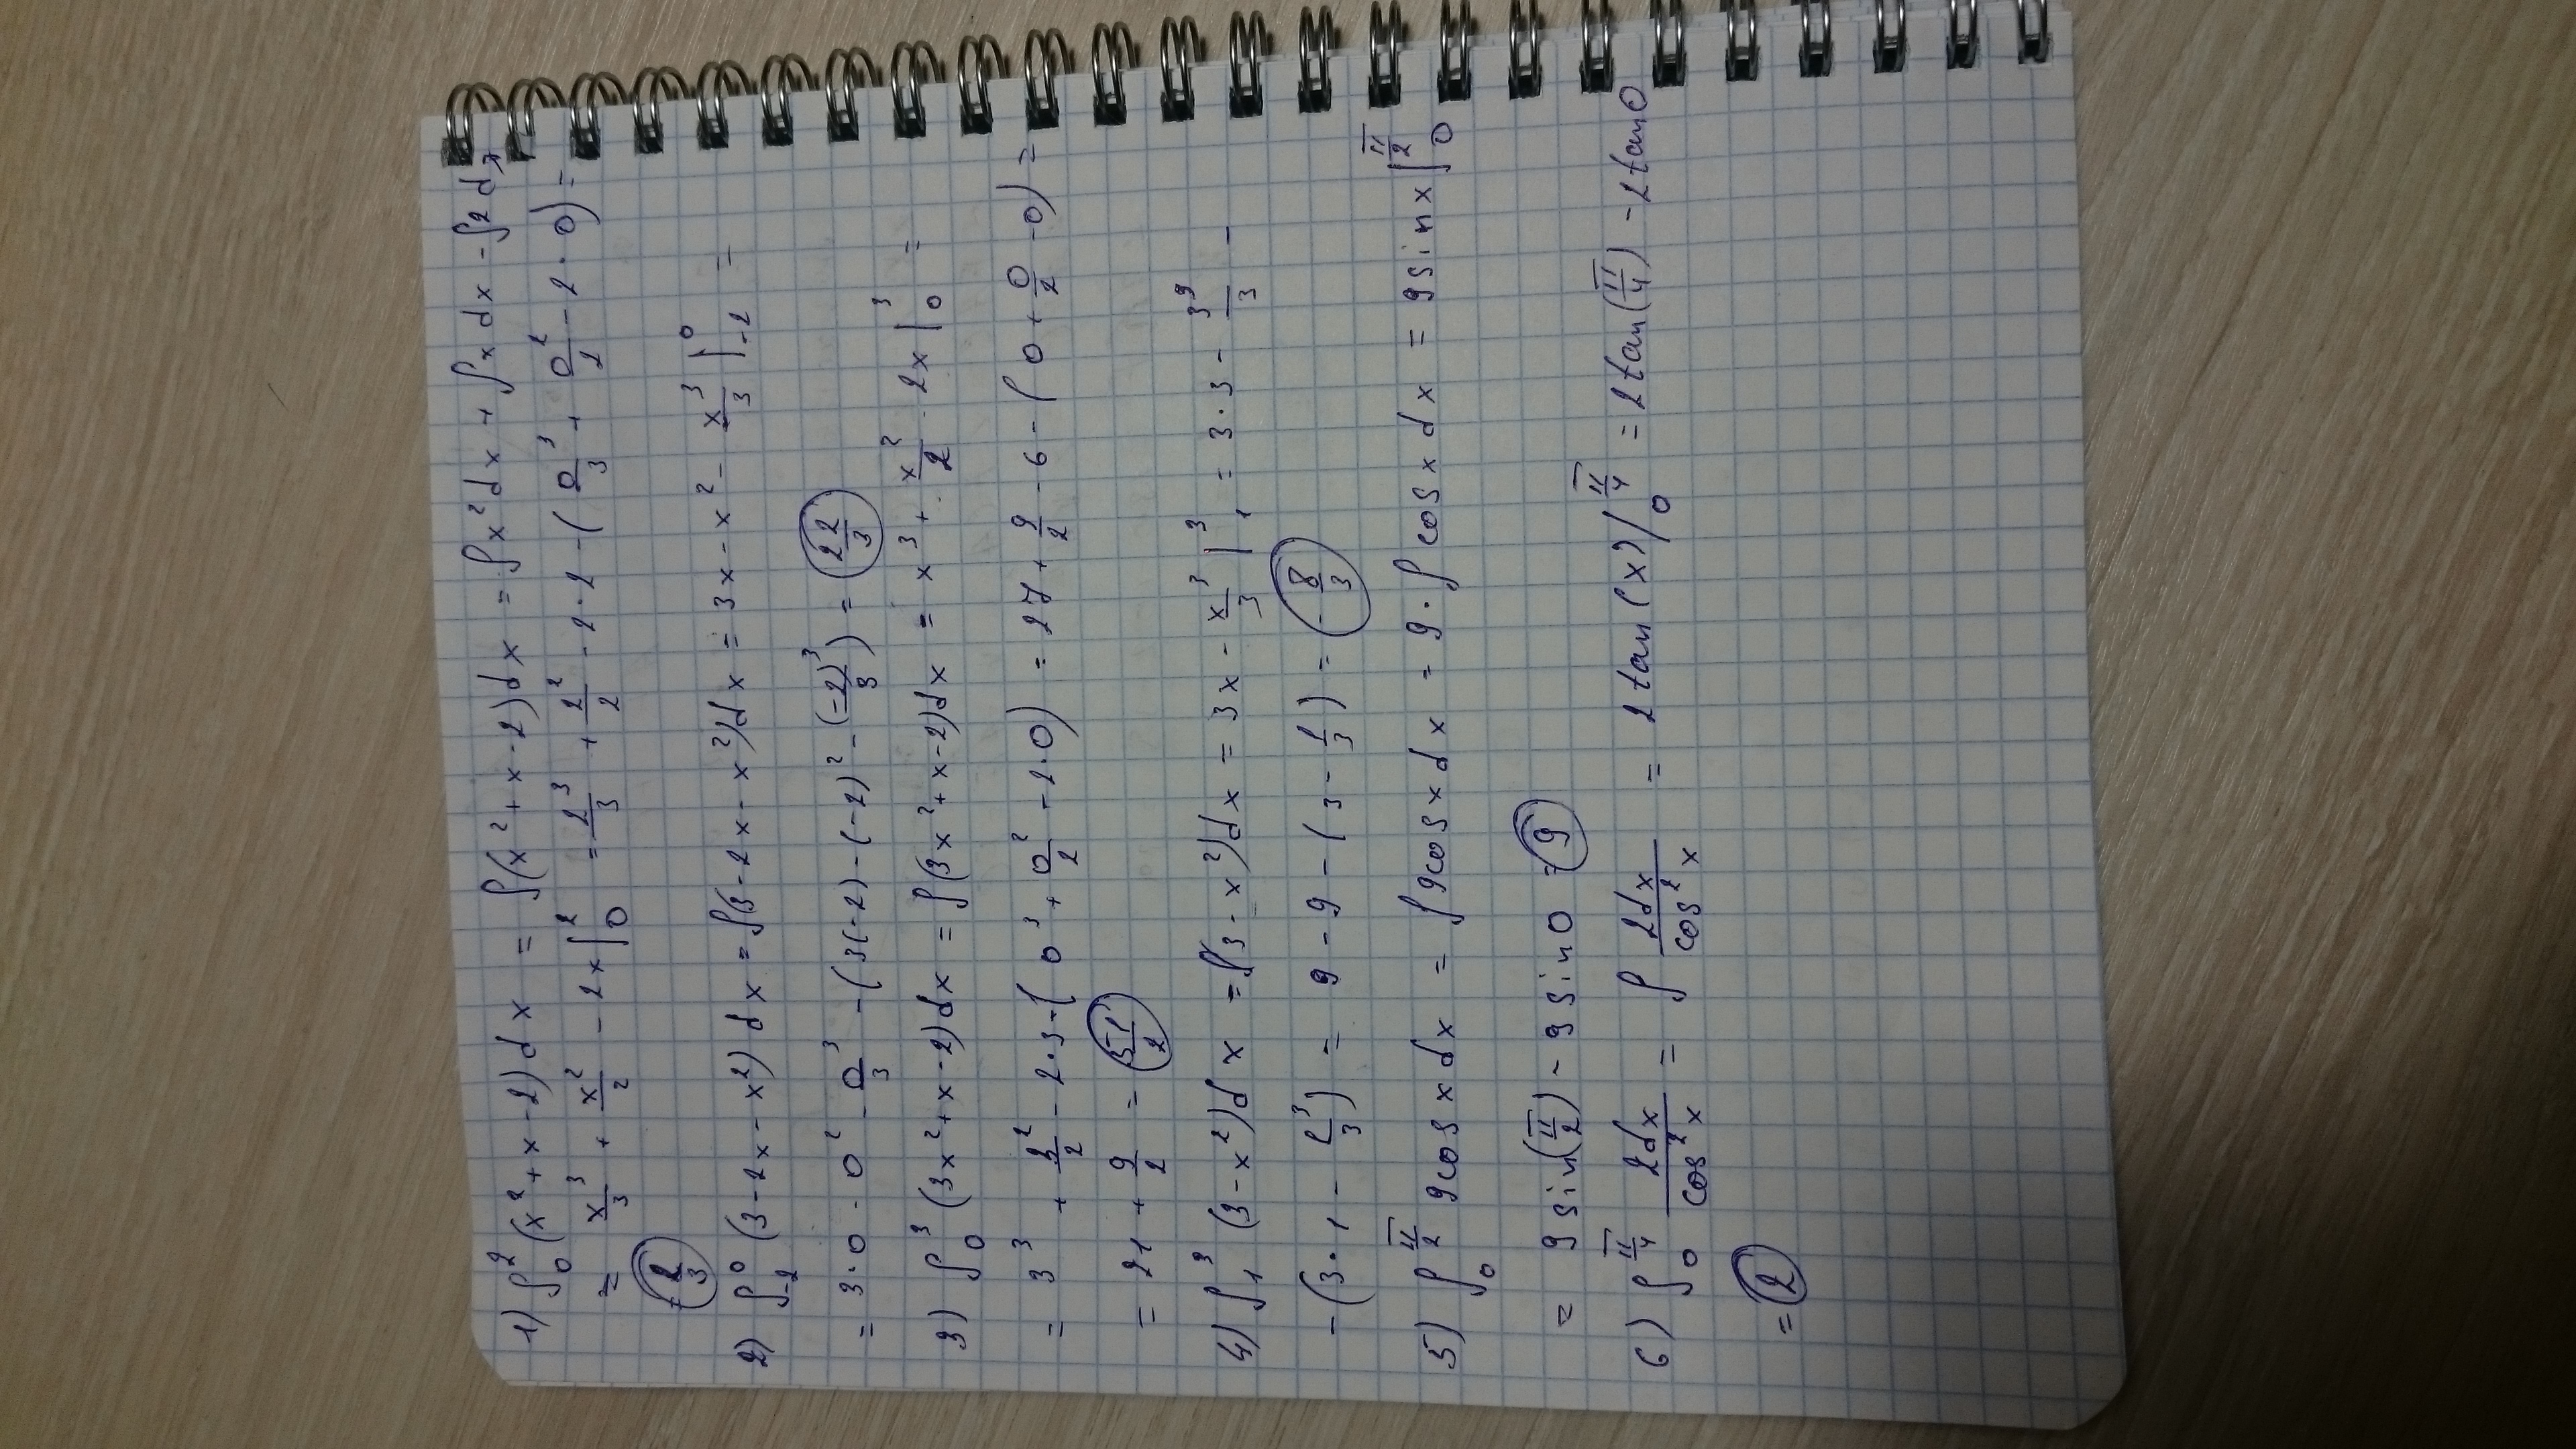 1) ∫₀² (x² + x - 2) dx = ∫(x² + x - 2) dx = ∫x² dx + ∫x dx - ∫2 dx
= x³/3 + x²/2 - 2x |₀² = 2³/3 + 2²/2 - 2·2 - (0³/3 + 0²/2 - 2·0) =
= 2/3
2) ∫₋₂⁰ (3 - 2x - x²) dx = ∫(3 - 2x - x²) dx = 3x - x² - x³/3 |₋₂⁰ =
= 3·0 - 0² - 0³/3 - (3(-2) - (-2)² - (-2)³/3) = 22/3
3) ∫₀³ (3x² + x - 2) dx = ∫(3x² + x - 2) dx = x³ + x²/2 - 2x |₀³ =
= 3³ + 3²/2 - 2·3 - (0³ + 0²/2 - 2·0) = 27 + 9/2 - 6 - (0 + 0/2 - 0) =
= 21 + 9/2 = 51/2
4) ∫₁³ (3 - x²) dx = ∫(3 - x²) dx = 3x - x³/3 |₁³ = 3·3 - 3³/3 -
- (3·1 - 1³/3) = 9 - 9 - (3 - 1/3) = - 8/3
5) ∫₀^(π/2) 9cosx dx = ∫9cosx dx = 9·∫cosx dx = 9sinx |₀^(π/2)
= 9 sin(π/2) - 9 sin0 = 9
6) ∫₀^(π/4) 2dx/cos²x = ∫ 2dx/cos²x = 2tan(x) |₀^(π/4) = 2tan(π/4) - 2tan0
= 2